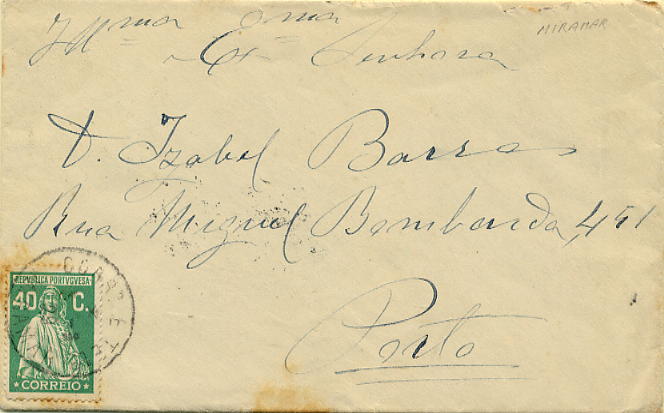 MIRAMAR
Illma Exma
Senhora
D. Izabel Barros
Rua Miguel Bombarda, 451
Porto
REPUBLICA PORTUGUESA
40 C.
CORREIO